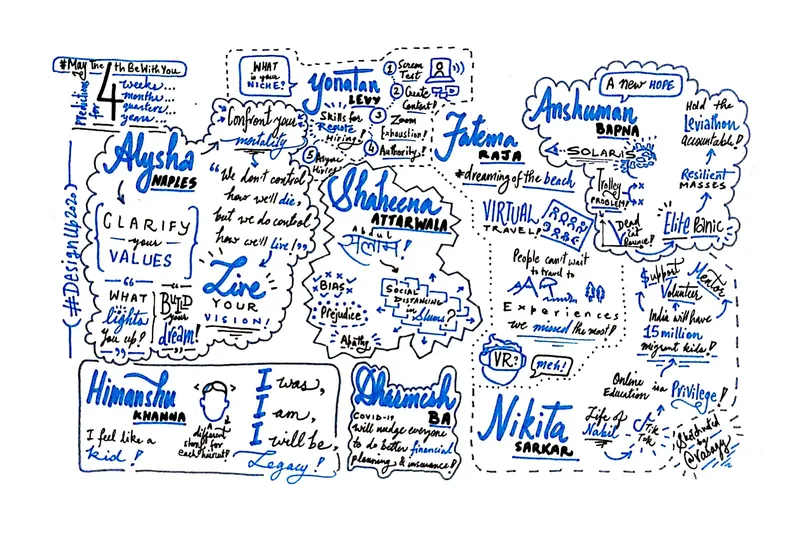 #May the 4th Be With You
Meditations for
4
weeks...
months...
quarters...
years...
(#DesignUp2020)
Alysha
NAPLES
CLARIFY
your
VALUES
"WHAT
lights
you up?"
BUILD
your
dream!
Confront your
mortality
"We don't control
how we'll die,
but we do control
how we'll live!"
Live
YOUR
VISION!
WHAT
is your
NICHE?
Yonatan
LEVY
Skills for
Remote
Hiring!
① Screen
Test
② Create
Content!
③ Zoom
Exhaustion!
④ Authority!
⑤ Async
Hires
Shaheena
ATTARWALA
Abdul
सलाम!
BIAS
Prejudice
Apathy
SOCIAL
DISTANCING
in Slums?
Fatema
RAJA
#dreaming of the beach
VIRTUAL
TRAVEL!
People can't wait
to travel to
Experiences
we missed the most!
VR?
meh!
A new HOPE
Anshuman
BAPNA
SOLARIS
Trolley
PROBLEM!
Dead
cat
Bounce!
Elite Panic
Resilient
MASSES
Hold the
Leviathan
accountable!
Himanshu
KHANNA
I feel like a
kid!
different
story for
each haircut!
I was,
I am,
I will be,
Legacy!
Dharmesh
BA
COVID-19
will nudge everyone
to do better financial
planning & insurance!
Nikita
SARKAR
Life of
Nabil
Tik
Tok
Online
Education is a Privilege!
India will have
15 million
migrant kids!
Support
Volunteer
Mentor
Sketchnoted
by